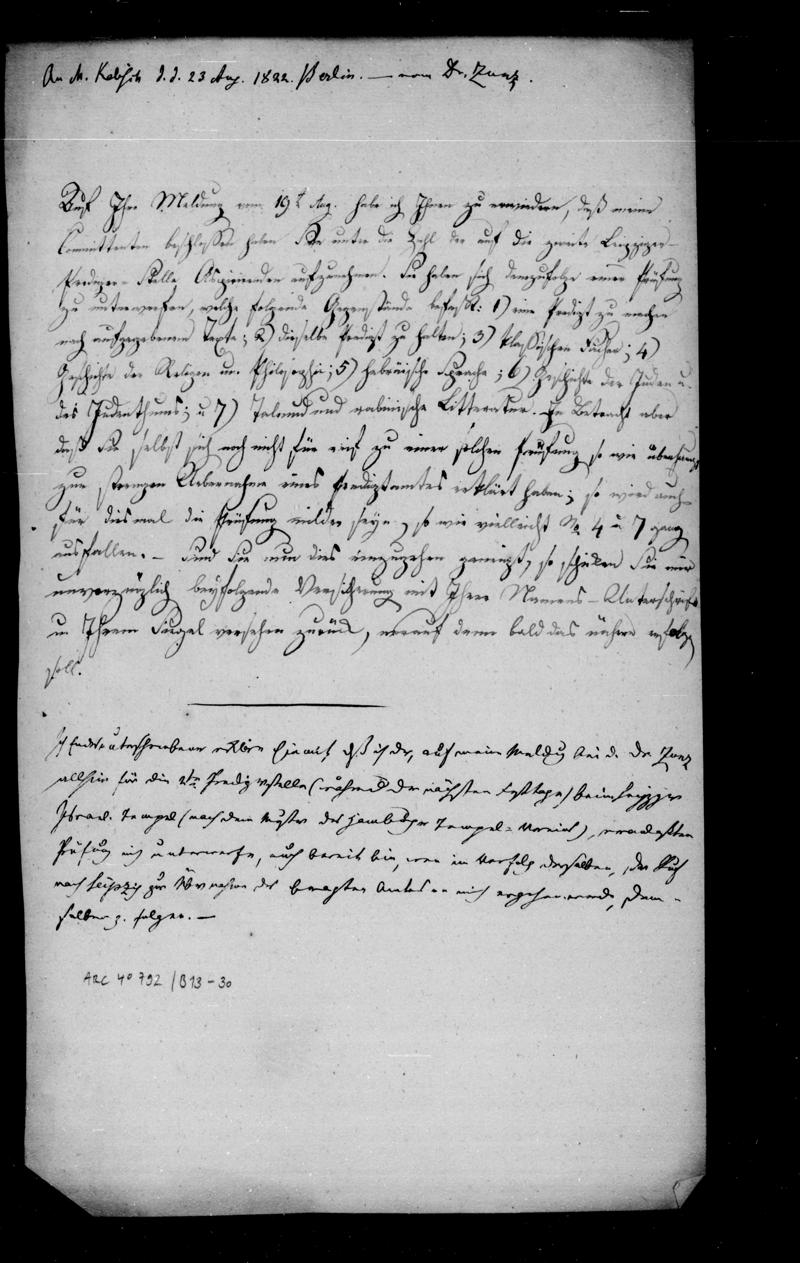 An M. Kalisch d. d. 23 Aug. 1822. Berlin. — vom Dr. Zunz.
Auf Ihre Meldung vom 19t Aug. habe ich Ihnen zu erwiedern, daß meine
Committenten beschlossen haben Sie unter die Zahl der auf die zweite Leipziger
Prediger-Stelle Aspirirenden aufzunehmen. Sie haben sich demzufolge einer Prüfung
zu unterwerfen, welche folgende Gegenstände befaßt: 1) eine Predigt zu machen
nach aufgegebenem Texte; 2) dieselbe Predigt zu halten; 3) klassischen Fächer; 4)
Geschichte der Religion un. Philosophie; 5) hebräische Sprache; 6) Geschichte der Juden u.
des Judenthums; u 7) Talmud und rabinische Litteratur. In Betracht aber
daß Sie selbst sich noch nicht für reif zu einer solchen Prüfung, so wie überhaupt
zur strengen Uebernahme eines Predigtamtes erklärt haben; so wird auch
für diesmal die Prüfung milder seyn, so wie vielleicht No. 4 u 7 ganz
ausfallen. — Sind Sie nun dies einzugehen geneigt, so schicken Sie mir
unverzüglich beyfolgende Versicherung mit Ihrer Namens-Unterschrift
u. Ihrem Siegel versehen zurück, worauf dann bald das nähere erfolgen
soll.
Ich Endesunterschriebener erkläre hiemit daß ich der, auf meine Meldung bei d. Dr. Zunz
allhier für die 2te Predigerstelle (während der nächsten Festtage) beim Leipziger
Israel. Tempel (nach dem Muster des Hamburger Tempel-Vereins), veranlaßten
Prüfung mich unterwerfe, auch bereit bin, wenn im Verfolg derselben, der Ruf
nach Leipzig zur Übernahme des besagten Amtes an mich ergehen werde, dem-
selben z. folgen. —
ARC 4° 792 / B13-30